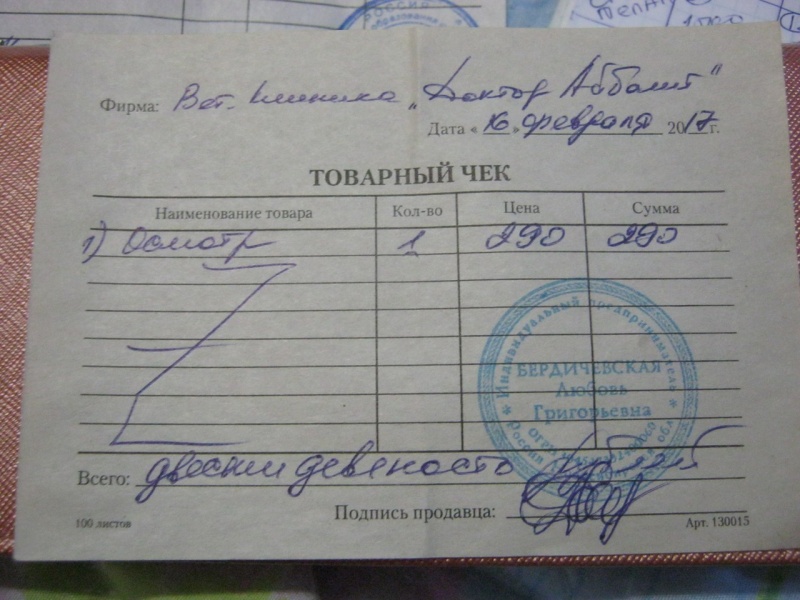 Фирма: Вет. клиника „Доктор Айболит"
Дата « 16 » февраля 2017 г.
ТОВАРНЫЙ ЧЕК
Наименование товара Кол-во Цена Сумма
1) Осмотр 1 290 290
Индивидуальный предприниматель
БЕРДИЧЕВСКАЯ
Любовь
Григорьевна
ОГРН
Россия
Всего: двести девяносто рублей
Подпись продавца:
100 листов Арт. 130015